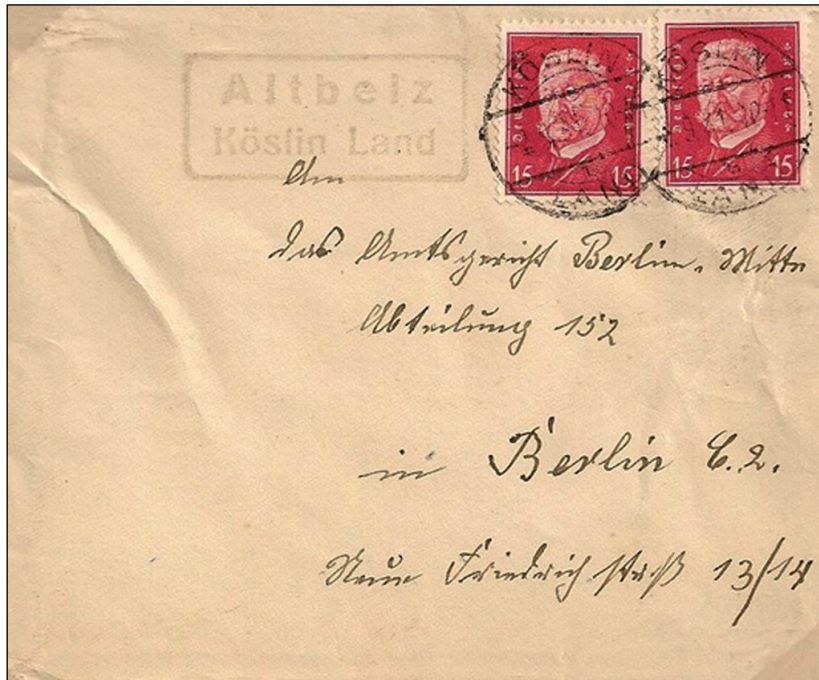 Altbelz
Köslin Land
KÖSLIN
LAND
Deutsches Reich
15 15
KÖSLIN
LAND
Deutsches Reich
15 15
An
das Amtsgericht Berlin-Mitte
Abteilung 152
in Berlin C.2.
Neue Friedrichstraß 13/14